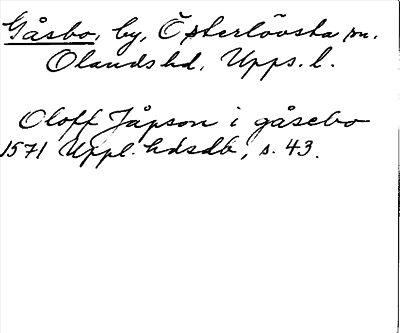 Gåsbo, by, Österlövsta sn.
Olands hd, Upps. l.
Oloff Jåpson i gåsebo
1571 Uppl. hdsdb, s. 43.